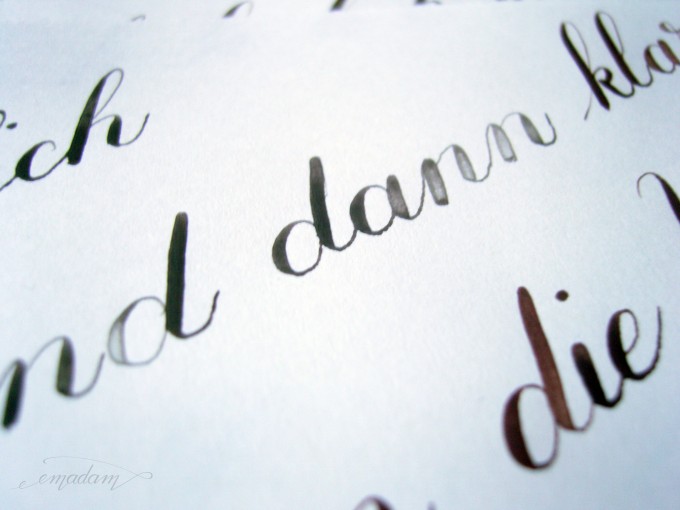 ich
nd dann klar
die
emadam